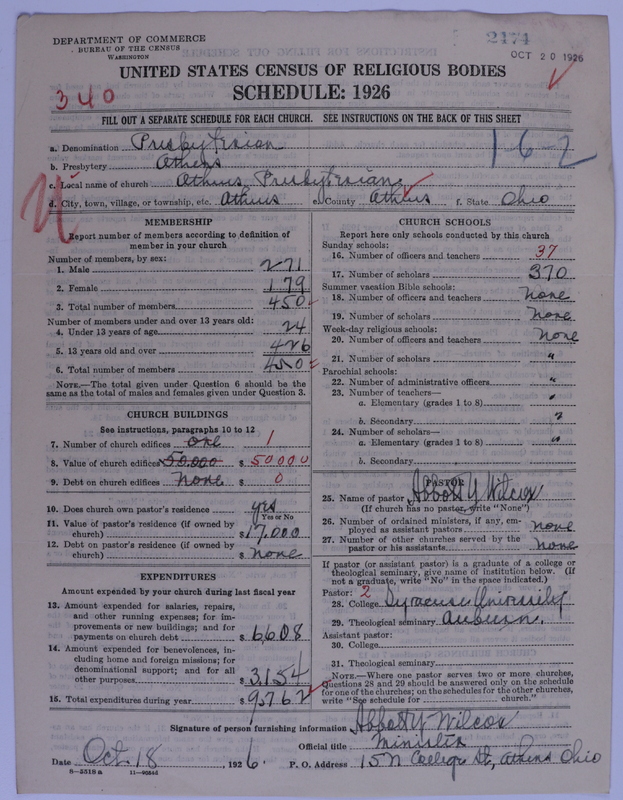 DEPARTMENT OF COMMERCE
BUREAU OF THE CENSUS
WASHINGTON
2174
OCT 20 1926
UNITED STATES CENSUS OF RELIGIOUS BODIES
SCHEDULE: 1926
340
FILL OUT A SEPARATE SCHEDULE FOR EACH CHURCH. SEE INSTRUCTIONS ON THE BACK OF THIS SHEET
a. Denomination Presbyterian
162
b. Presbytery Athens
c. Local name of church Athens Presbyterian
d. City, town, village, or township, etc. Athens e. County Athens f. State Ohio
MEMBERSHIP
Report number of members according to definition of
member in your church
Number of members, by sex:
1. Male 271
2. Female 179
3. Total number of members 450
Number of members under and over 13 years old:
4. Under 13 years of age 24
5. 13 years old and over 426
6. Total number of members 450
NOTE.—The total given under Question 6 should be the
same as the total of males and females given under Question 3.
CHURCH BUILDINGS
See instructions, paragraphs 10 to 12
7. Number of church edifices one 1
8. Value of church edifices 50.000 $ 50000
9. Debt on church edifices None $ 0
10. Does church own pastor's residence? yes
Yes or No
11. Value of pastor's residence (if owned by
church) $ 17,000
12. Debt on pastor's residence (if owned by
church) $ None
EXPENDITURES
Amount expended by your church during last fiscal year
13. Amount expended for salaries, repairs,
and other running expenses; for im-
provements or new buildings; and for
payments on church debt $ 6,608
14. Amount expended for benevolences, in-
cluding home and foreign missions; for
denominational support; and for all
other purposes $ 3,154
15. Total expenditures during year $ 9,762
CHURCH SCHOOLS
Report here only schools conducted by this church
Sunday schools:
16. Number of officers and teachers 37
17. Number of scholars 370
Summer vacation Bible schools:
18. Number of officers and teachers None
19. Number of scholars None
Week-day religious schools:
20. Number of officers and teachers None
21. Number of scholars "
Parochial schools:
22. Number of administrative officers "
23. Number of teachers—
a. Elementary (grades 1 to 8) "
b. Secondary "
24. Number of scholars—
a. Elementary (grades 1 to 8) "
b. Secondary
PASTOR
25. Name of pastor Abbott Y Wilcox
(If church has no pastor, write "None")
26. Number of ordained ministers, if any, em-
ployed as assistant pastors None
27. Number of other churches served by the
pastor or his assistants None
If pastor (or assistant pastor) is a graduate of a college or
theological seminary, give name of institution below. (If
not a graduate, write "No" in the space indicated.)
Pastor: 2
28. College Syracuse University
29. Theological seminary Auburn.
Assistant pastor:
30. College
31. Theological seminary
NOTE.—Where one pastor serves two or more churches,
Questions 28 and 29 should be answered only on the schedule
for one of the churches; on the schedules for the other churches,
write "See schedule for church."
Signature of person furnishing information Abbott Y Wilcox
Official title Minister
Date Oct. 18, 1926. P. O. Address 15 N College St, Athens Ohio
8—5518 a 11—9054d